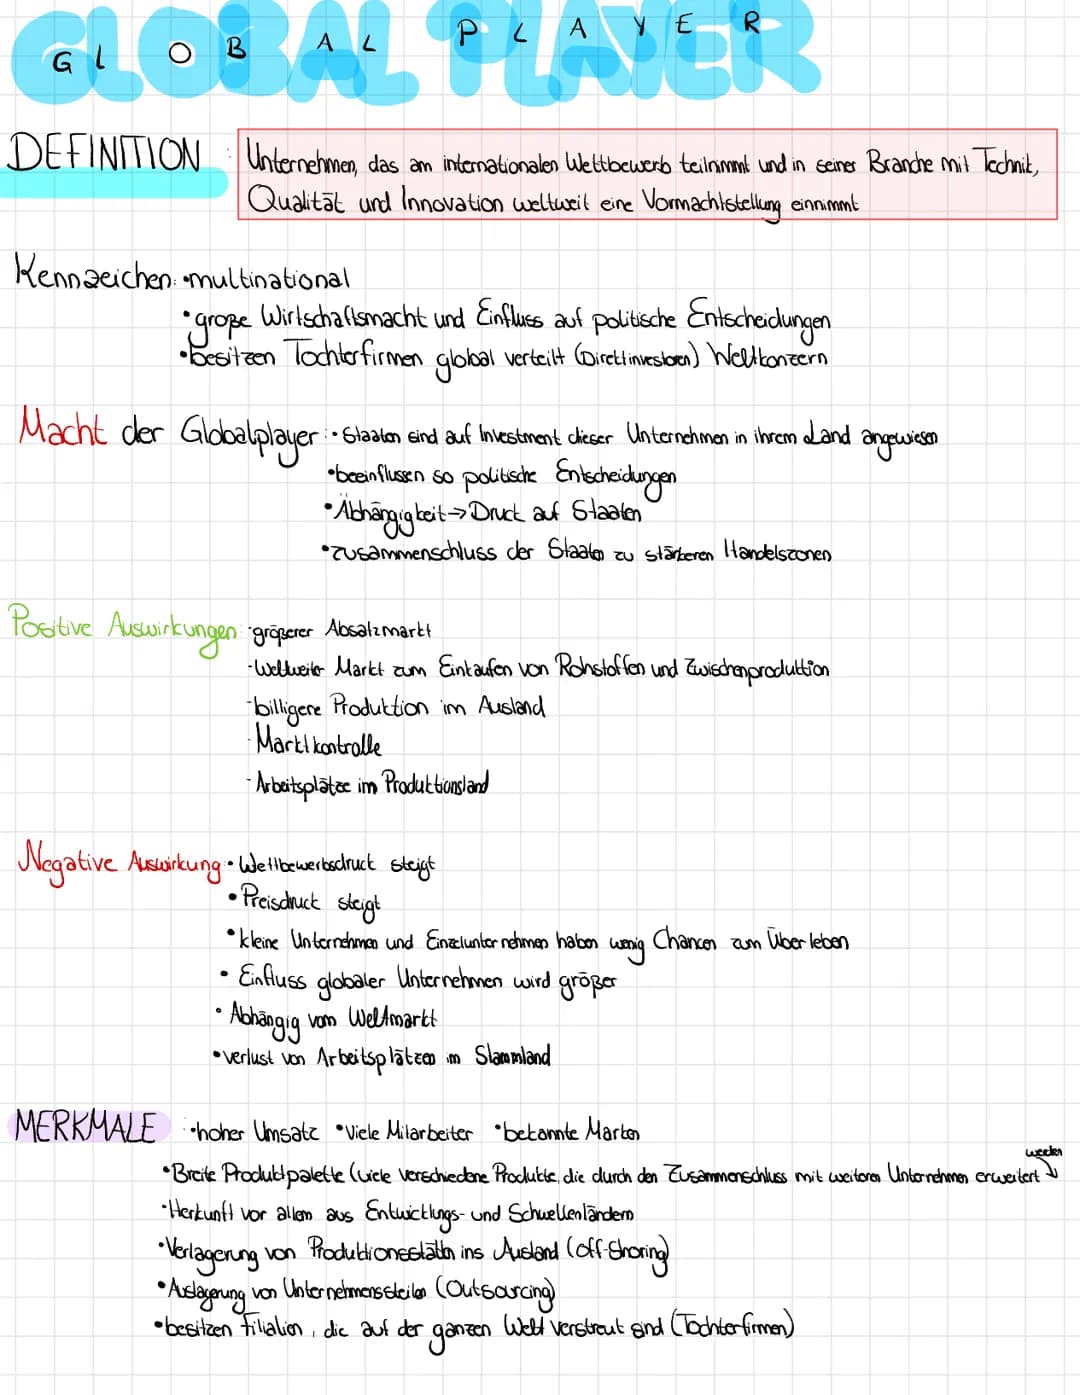 GLOBAL PLAYER
DEFINITION : Unternehmen, das am internationalen Wettbewerb teilnimmt und in seiner Branche mit Technik,
Qualität und Innovation weltweit eine Vormachtstellung einnimmt
Kennzeichen: •multinational
•große Wirtschaftsmacht und Einfluss auf politische Entscheidungen
•besitzen Tochterfirmen global verteilt (Direktinvestoren) Weltkonzern
Macht der Globalplayer: •Staaten sind auf Investment dieser Unternehmen in ihrem Land angewiesen
•beeinflussen so politische Entscheidungen
•Abhängigkeit → Druck auf Staaten
•zusammenschluss der Staaten zu stärkeren Handelszonen
Positive Auswirkungen: ·größerer Absatzmarkt
-Weltweiter Markt zum Einkaufen von Rohstoffen und Zwischenproduktion
-billigere Produktion im Ausland
-Marktkontrolle
-Arbeitsplätze im Produktionsland
Negative Auswirkung: •Wettbewerbsdruck steigt
•Preisdruck steigt
•kleine Unternehmen und Einzelunternehmen haben wenig Chancen zum Überleben
•Einfluss globaler Unternehmen wird größer
•Abhängig vom Weltmarkt
•verlust von Arbeitsplätzen im Stammland
MERKMALE : •hoher Umsatz •Viele Mitarbeiter •bekannte Marken
•Breite Produktpalette (viele verschiedene Produkte, die durch den Zusammenschluss mit weiteren Unternehmen erweitert werden
•Herkunft vor allem aus Entwicklungs- und Schwellenländern
•Verlagerung von Produktionsstätten ins Ausland (Off-Shoring)
•Auslagerung von Unternehmensteilen (Outsourcing)
•besitzen Filialien, die auf der ganzen Welt verstreut sind (Tochterfirmen)